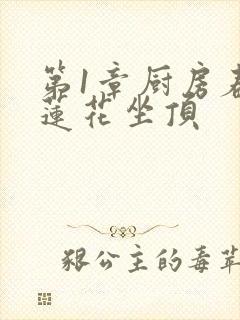 第1章厨房
蓮花坐頂
狠公主的毒苹